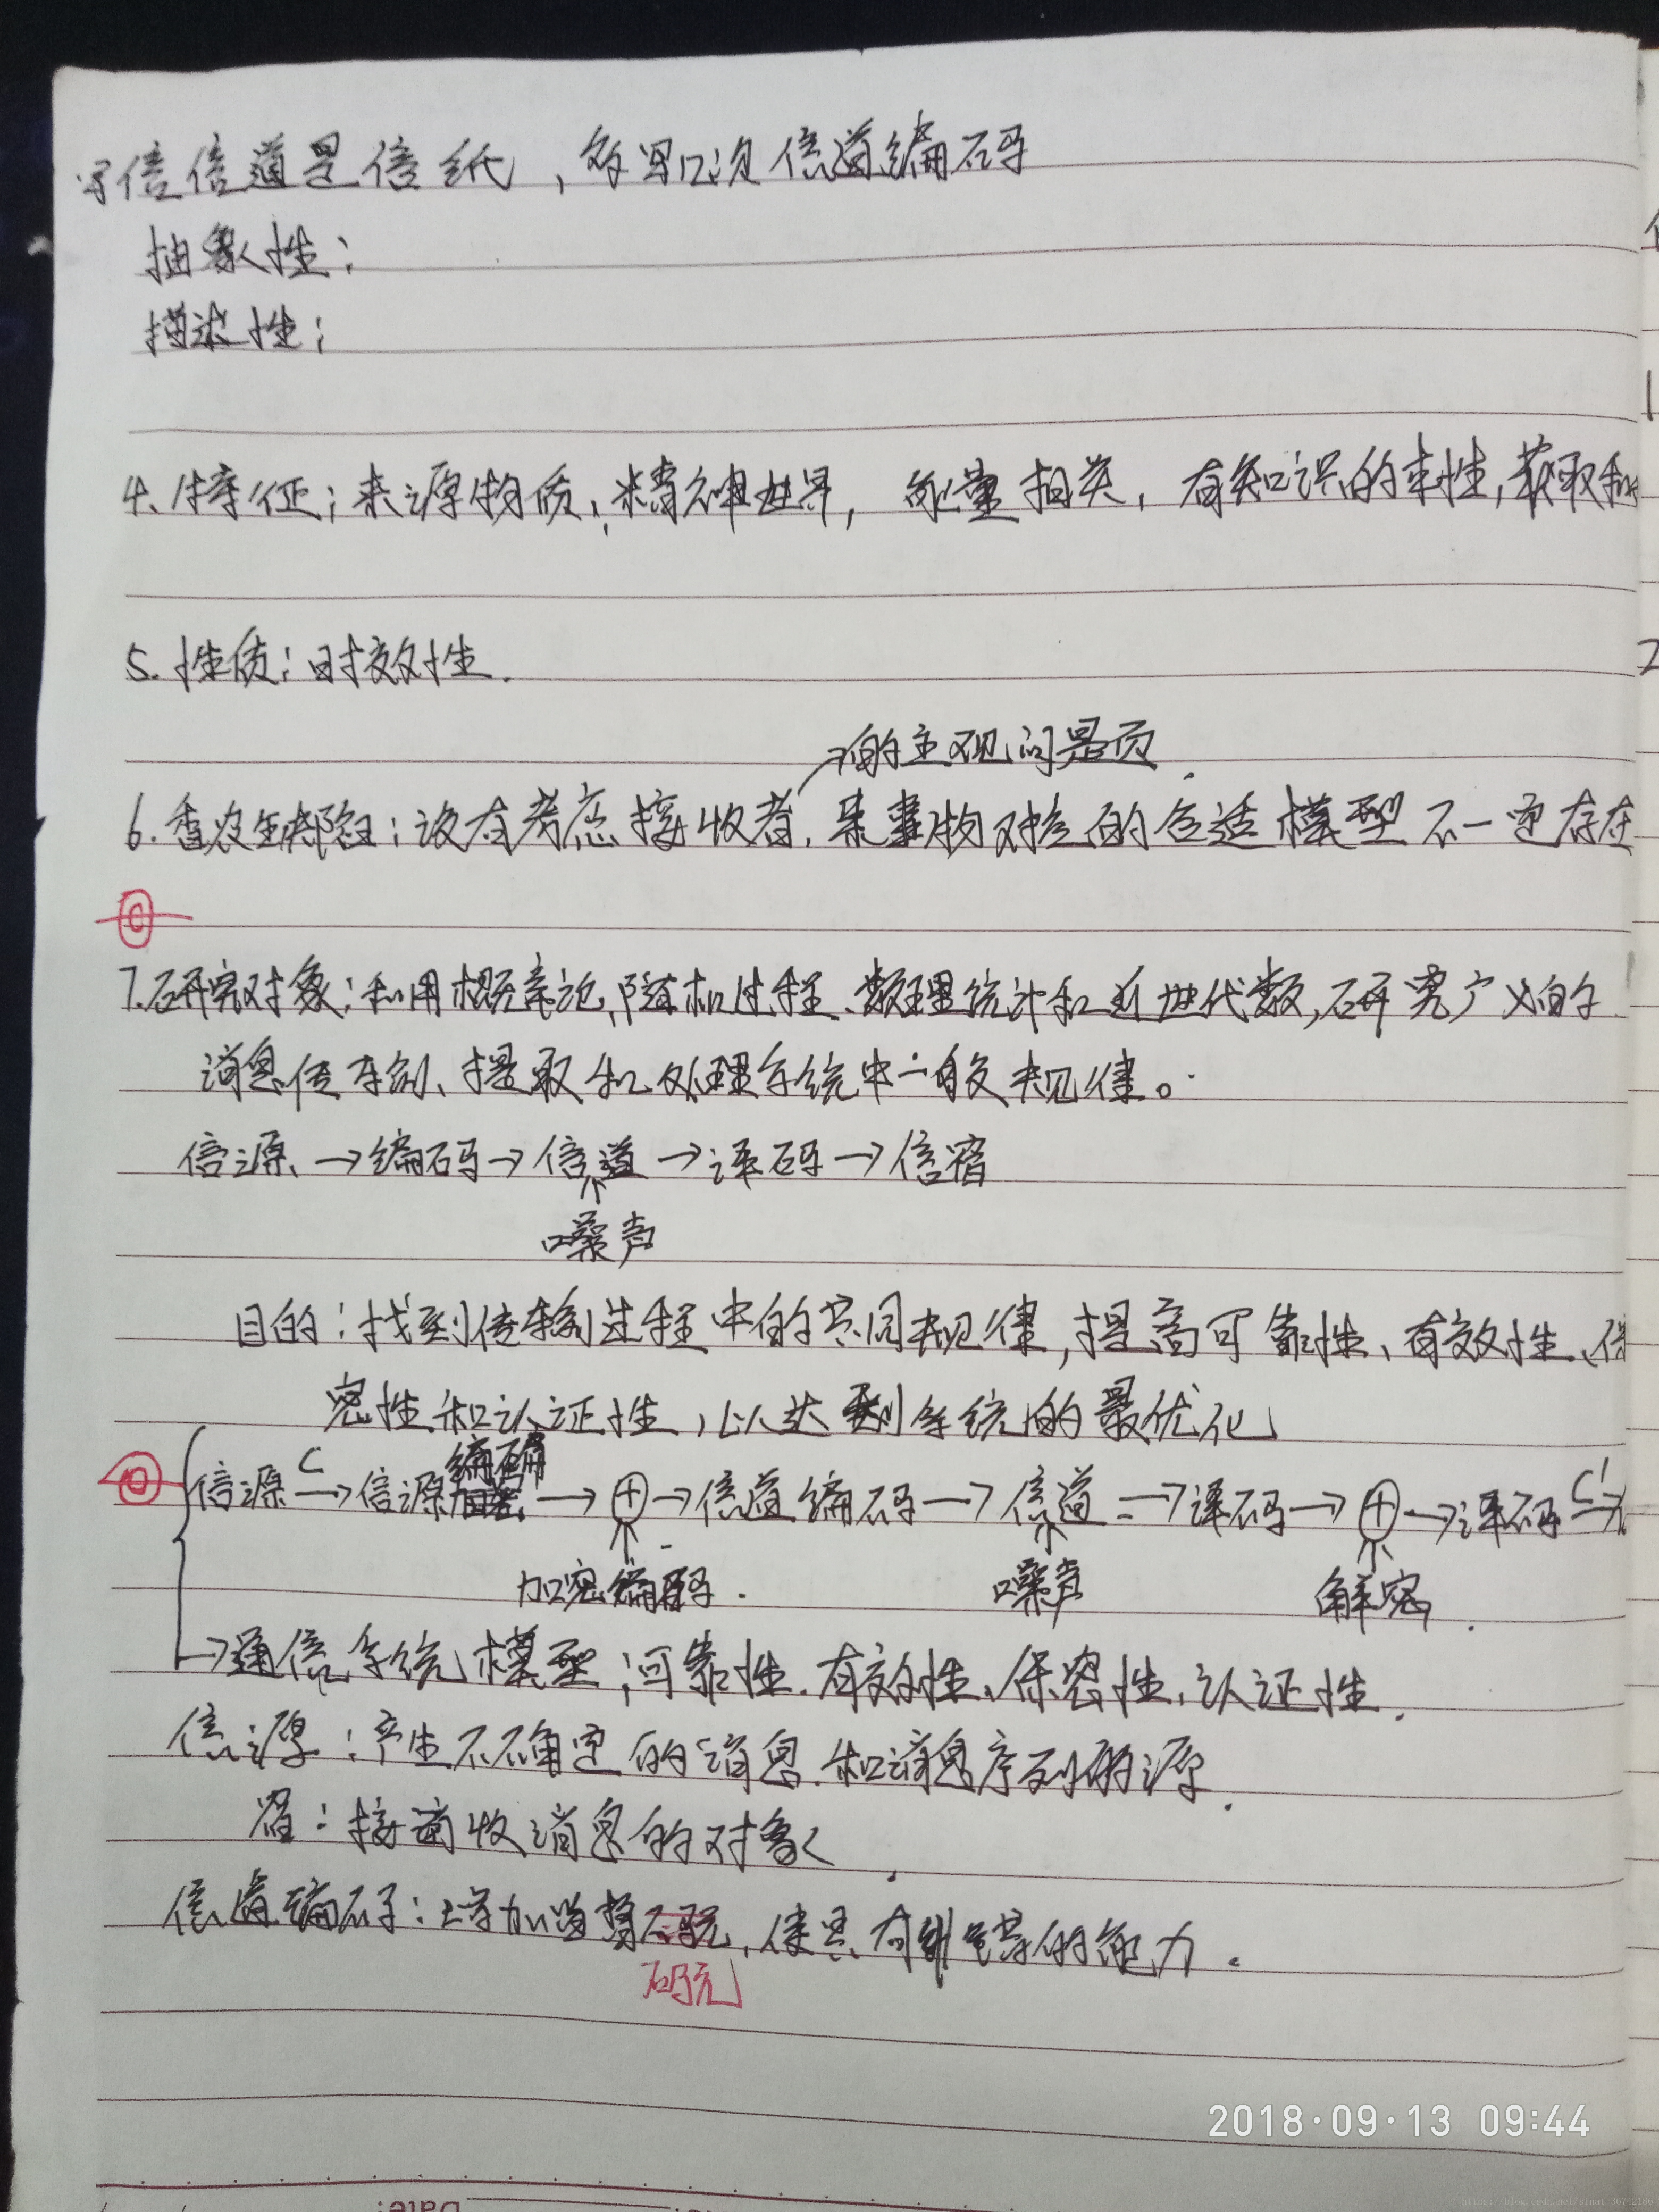 写信信道是信纸，多写几次信道编码
抽象性：
描述性：
4、特征：来源物质，精神世界，能量相关，有知识的本性，获取和
5. 性质：时效性.
的主观问题.
6. 香农缺陷：没有考虑接收者，某事物对应的合适模型不一定存在
7.研究对象：利用概率论，随机过程、数理统计和近世代数，研究广义的
消息传输、提取和处理系统中一般规律。
信源→编码→信道→译码→信宿
噪声
目的：找到传输过程中的共同规律，提高可靠性、有效性、保
密性和认证性，以达到系统的最优化
编码
信源 C→信源→⊕→信道编码→信道→译码→⊕→译码 C'→
加密编码.
噪声
解密.
→通信系统模型；可靠性、有效性、保密性、认证性.
信源：产生不确定的消息和消息序列的源.
宿：接收消息的对象.
信道编码：增加监督码元，使具有纠错的能力。
码元
2018·09·13 09:44
Date: